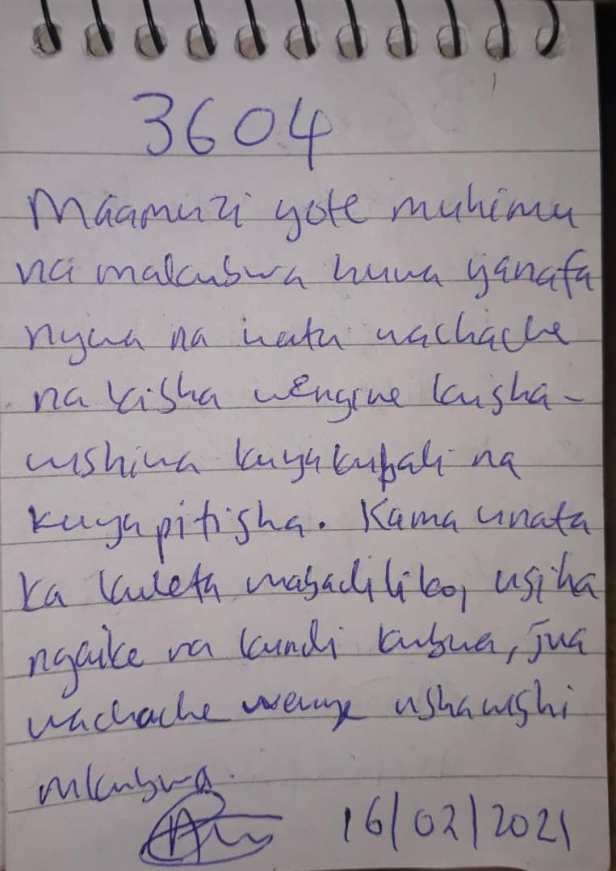 3604
Maamuzi yote muhimu
na makubwa huwa yanafa
nywa na watu wachache
na kisha wengine kusha-
wishiwa kuyakubali na
kuyapitisha. Kama unata
ka kuleta mabadiliko, usiha
ngaike na kundi kubwa, jua
wachache wenye ushawishi
mkubwa.
16/02/2021